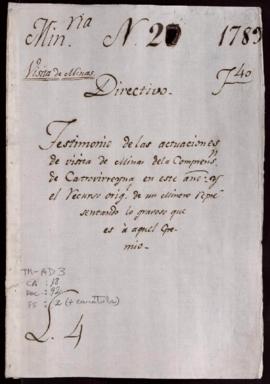 Min.ría N. 20 1783
Visita de Minas. J 40
Directivo.
Testimonio de las actuaciones
de visita de Minas de la Comprens.n
de Castrovirreyna en este año: y
el Recurso orig.l de un Minero repre
sentando lo gravoso que
es à aquel Gre
mio.
TM-AD3
CA: 18
DOC: 92
FS: 2 (+ caratula)
L. 4